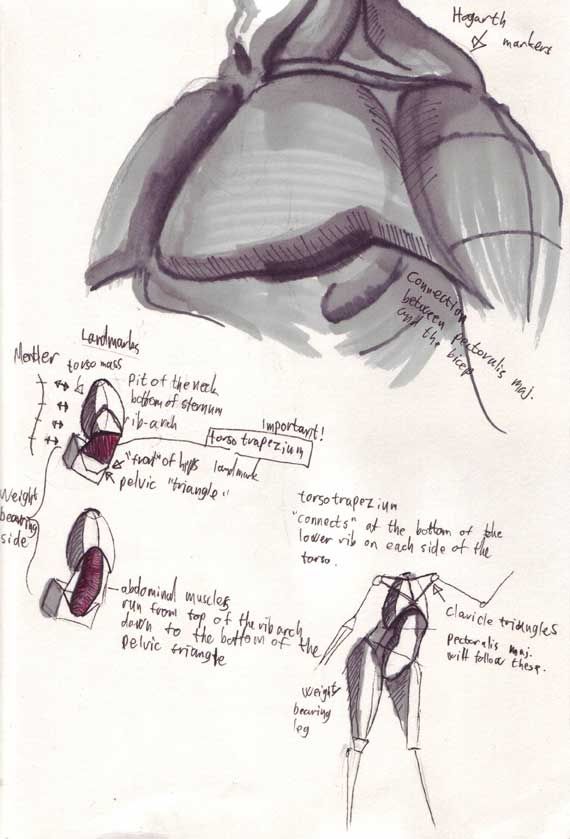 Hogarth
markers
Connection
between pectoralis maj.
and the bicep
Landmarks
Mentler
torso mass
Pit of the neck
bottom of sternum
rib-arch
Important!
torso trapezium
landmark
"front" of hips
pelvic "triangle"
Weight
bearing
side
abdominal muscles
run from top of the rib arch
down to the bottom of the
pelvic triangle
torso trapezium
"connects" at the bottom of the
lower rib on each side of the
torso.
Clavicle triangles
pectoralis maj.
will follow these.
Weight
bearing
leg